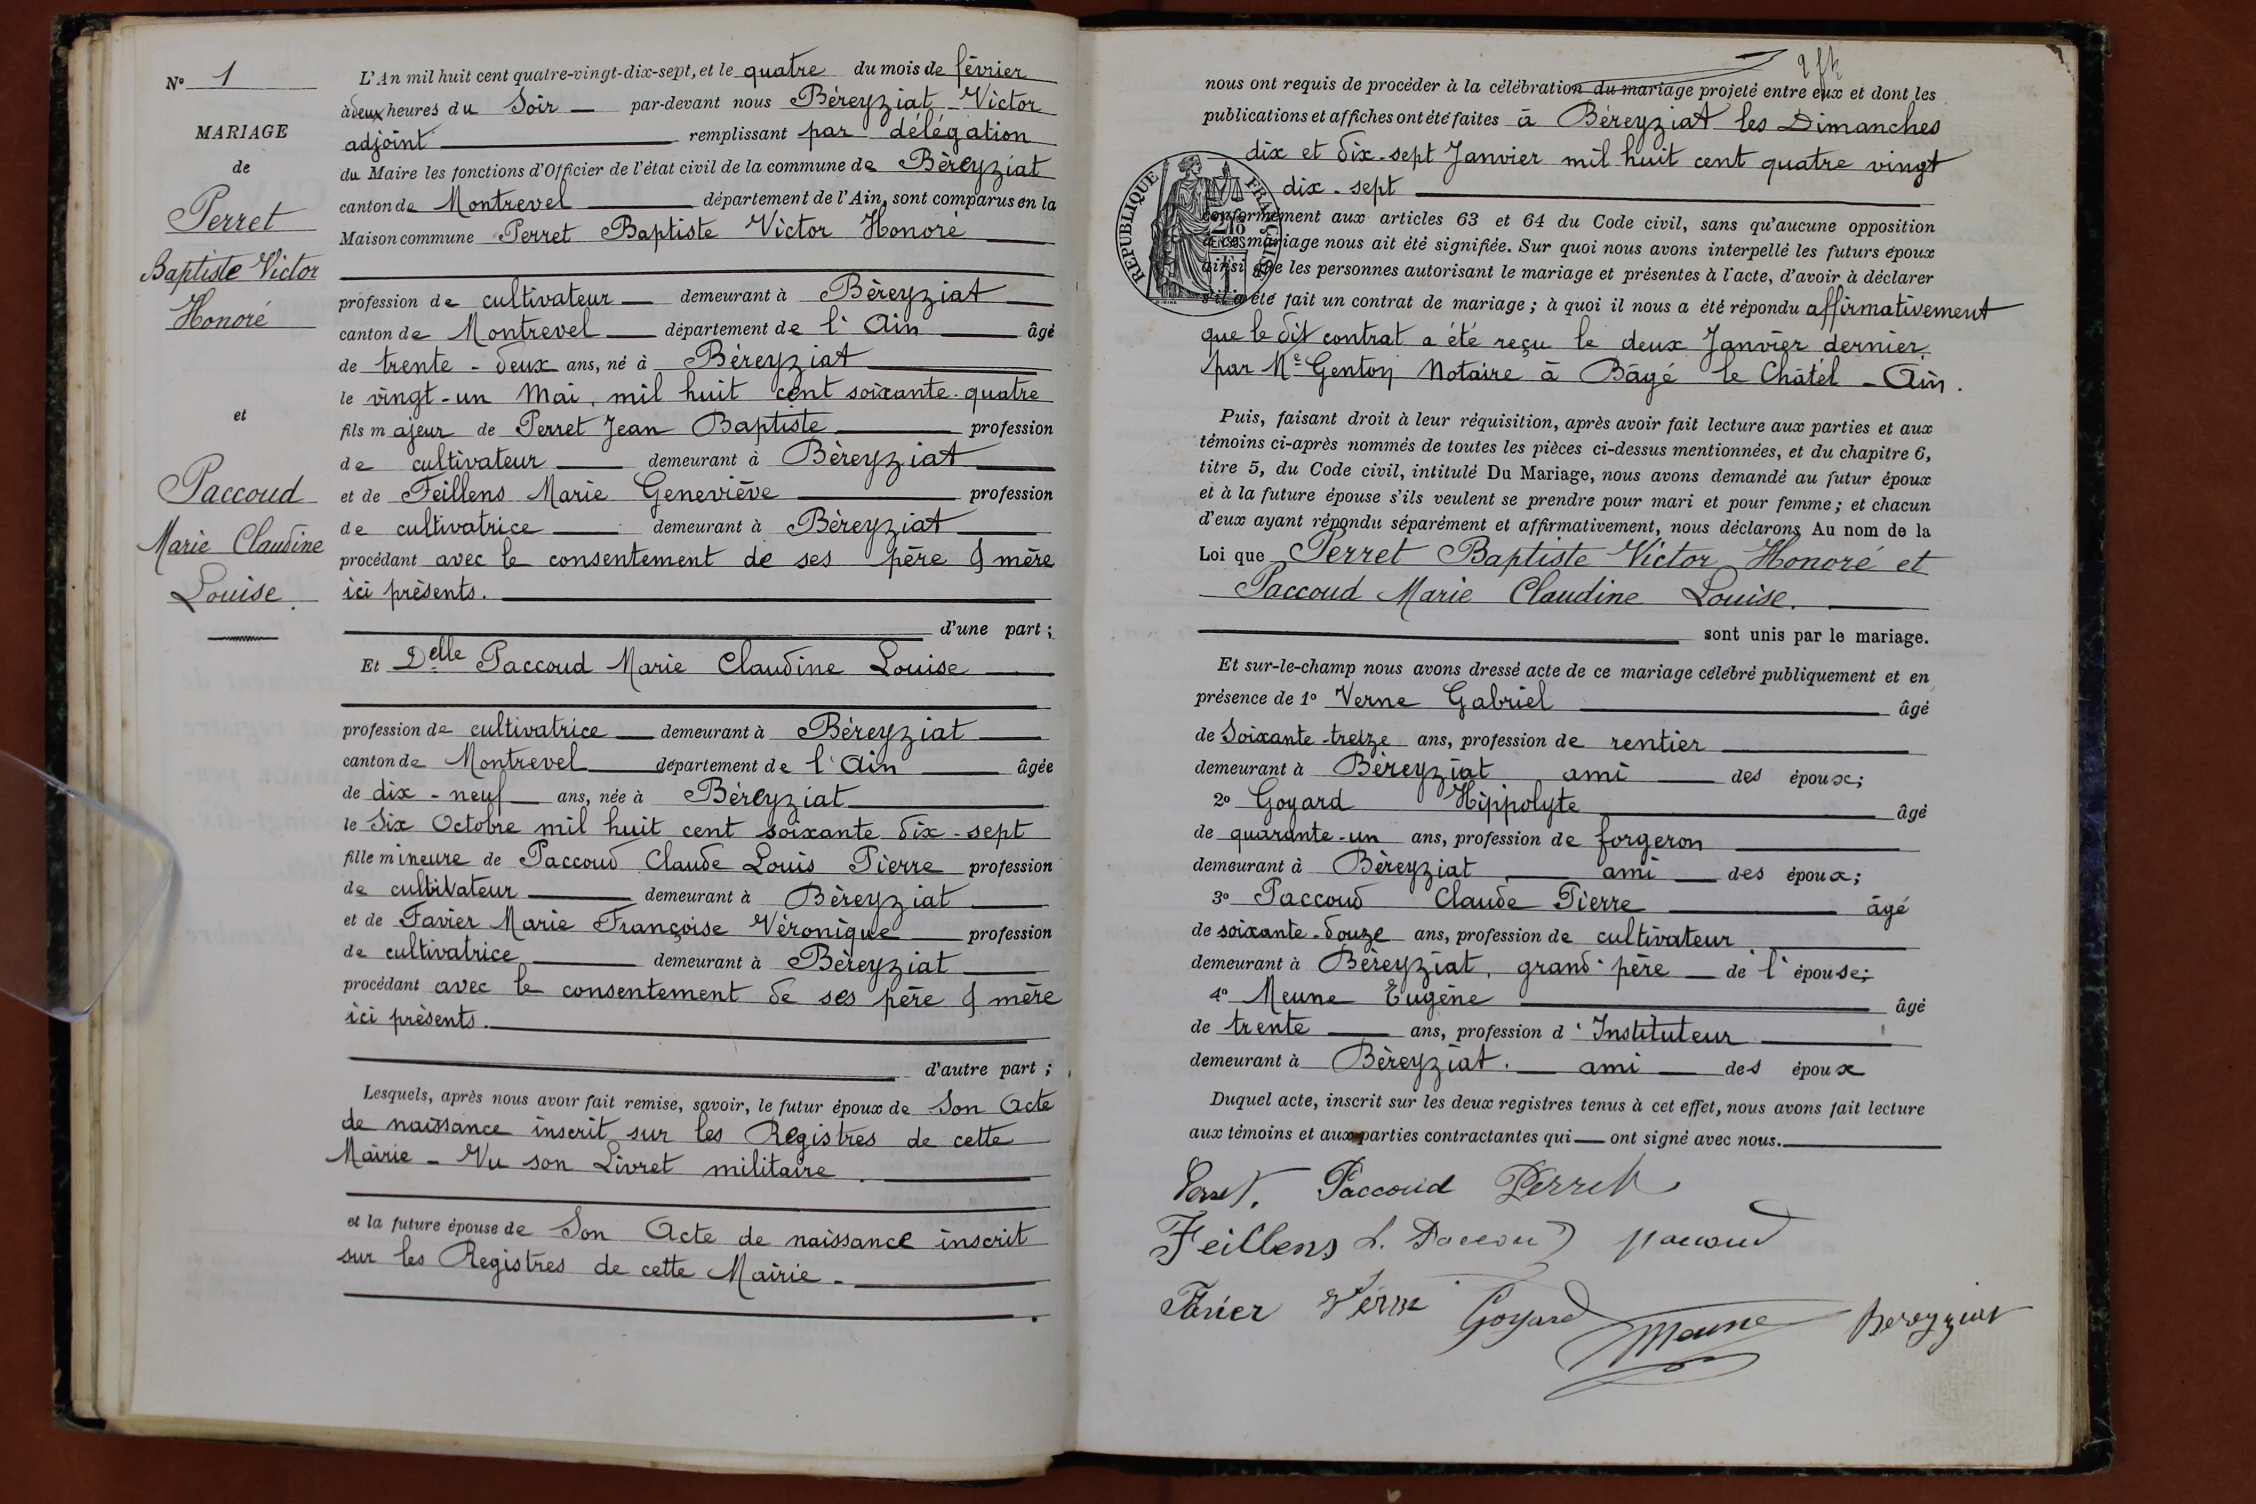 N° 1
MARIAGE
de
Perret
Baptiste Victor
Honoré
et
Paccoud
Marie Claudine
Louise.
L'An mil huit cent quatre-vingt-dix-sept, et le quatre du mois de février
à deux heures du Soir — par-devant nous Béreyziat Victor
adjoint — remplissant par délégation
du Maire les fonctions d'Officier de l'état civil de la commune de Béreyziat
canton de Montrevel — département de l'Ain, sont comparus en la
Maison commune Perret Baptiste Victor Honoré —
profession de cultivateur — demeurant à Béreyziat —
canton de Montrevel — département de l'Ain — âgé
de trente-deux ans, né à Béreyziat —
le vingt-un Mai, mil huit cent soixante-quatre
fils majeur de Perret Jean Baptiste — profession
de cultivateur — demeurant à Béreyziat —
et de Feillens Marie Geneviève — profession
de cultivatrice — demeurant à Béreyziat —
procédant avec le consentement de ses père & mère
ici présents. —
— d'une part;
Et Delle Paccoud Marie Claudine Louise —
profession de cultivatrice — demeurant à Béreyziat —
canton de Montrevel — département de l'Ain — âgée
de dix-neuf — ans, née à Béreyziat —
le Six Octobre mil huit cent soixante dix-sept
fille mineure de Paccoud Claude Louis Pierre profession
de cultivateur — demeurant à Béreyziat —
et de Favier Marie Françoise Véronique — profession
de cultivatrice — demeurant à Béreyziat —
procédant avec le consentement de ses père & mère
ici présents. —
— d'autre part;
Lesquels, après nous avoir fait remise, savoir, le futur époux de Son Acte
de naissance inscrit sur les Registres de cette
Mairie — Vu son Livret militaire. —
et la future épouse de Son Acte de naissance inscrit
sur les Registres de cette Mairie. —
nous ont requis de procéder à la célébration du mariage projeté entre eux et dont les
publications et affiches ont été faites à Béreyziat les Dimanches
dix et dix-sept Janvier mil huit cent quatre vingt
dix-sept —
RÉPUBLIQUE FRANÇAISE
conformément aux articles 63 et 64 du Code civil, sans qu'aucune opposition
à ce mariage nous ait été signifiée. Sur quoi nous avons interpellé les futurs époux
ainsi que les personnes autorisant le mariage et présentes à l'acte, d'avoir à déclarer
s'il a été fait un contrat de mariage; à quoi il nous a été répondu affirmativement
que le dit contrat a été reçu le deux Janvier dernier,
par Me Genton Notaire à Bâgé le Châtel - Ain.
Puis, faisant droit à leur réquisition, après avoir fait lecture aux parties et aux
témoins ci-après nommés de toutes les pièces ci-dessus mentionnées, et du chapitre 6,
titre 5, du Code civil, intitulé Du Mariage, nous avons demandé au futur époux
et à la future épouse s'ils veulent se prendre pour mari et pour femme; et chacun
d'eux ayant répondu séparément et affirmativement, nous déclarons Au nom de la
Loi que Perret Baptiste Victor Honoré et
Paccoud Marie Claudine Louise. —
— sont unis par le mariage.
Et sur-le-champ nous avons dressé acte de ce mariage célébré publiquement et en
présence de 1° Verne Gabriel — âgé
de Soixante-treize ans, profession de rentier —
demeurant à Béreyziat ami — des époux;
2° Goyard Hippolyte — âgé
de quarante-un ans, profession de forgeron —
demeurant à Béreyziat — ami — des époux;
3° Paccoud Claude Pierre — âgé
de soixante-douze ans, profession de cultivateur —
demeurant à Béreyziat, grand-père — de l'épouse;
4° Meune Eugène — âgé
de trente — ans, profession d'Instituteur —
demeurant à Béreyziat. — ami — des époux
Duquel acte, inscrit sur les deux registres tenus à cet effet, nous avons fait lecture
aux témoins et aux parties contractantes qui — ont signé avec nous. —
Perret. Paccoud Perret
Feillens L. Paccoud paccoud
Favier Verne Goyard Meune Bereyziat